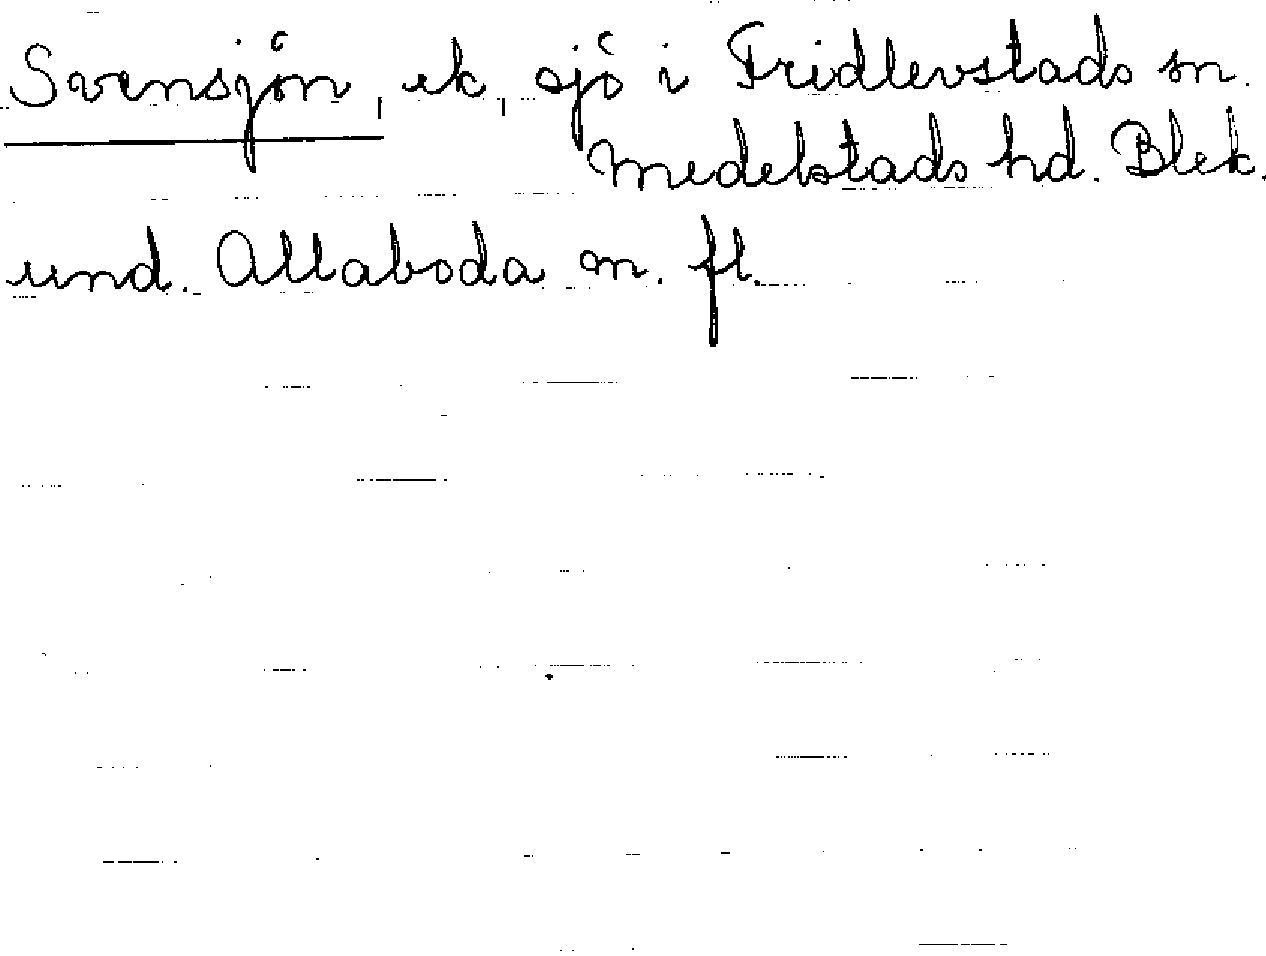 Svensjön, ek, sjö i Fridlevstads sn.
Medelstads hd. Blek.
und. Allaboda m. fl.